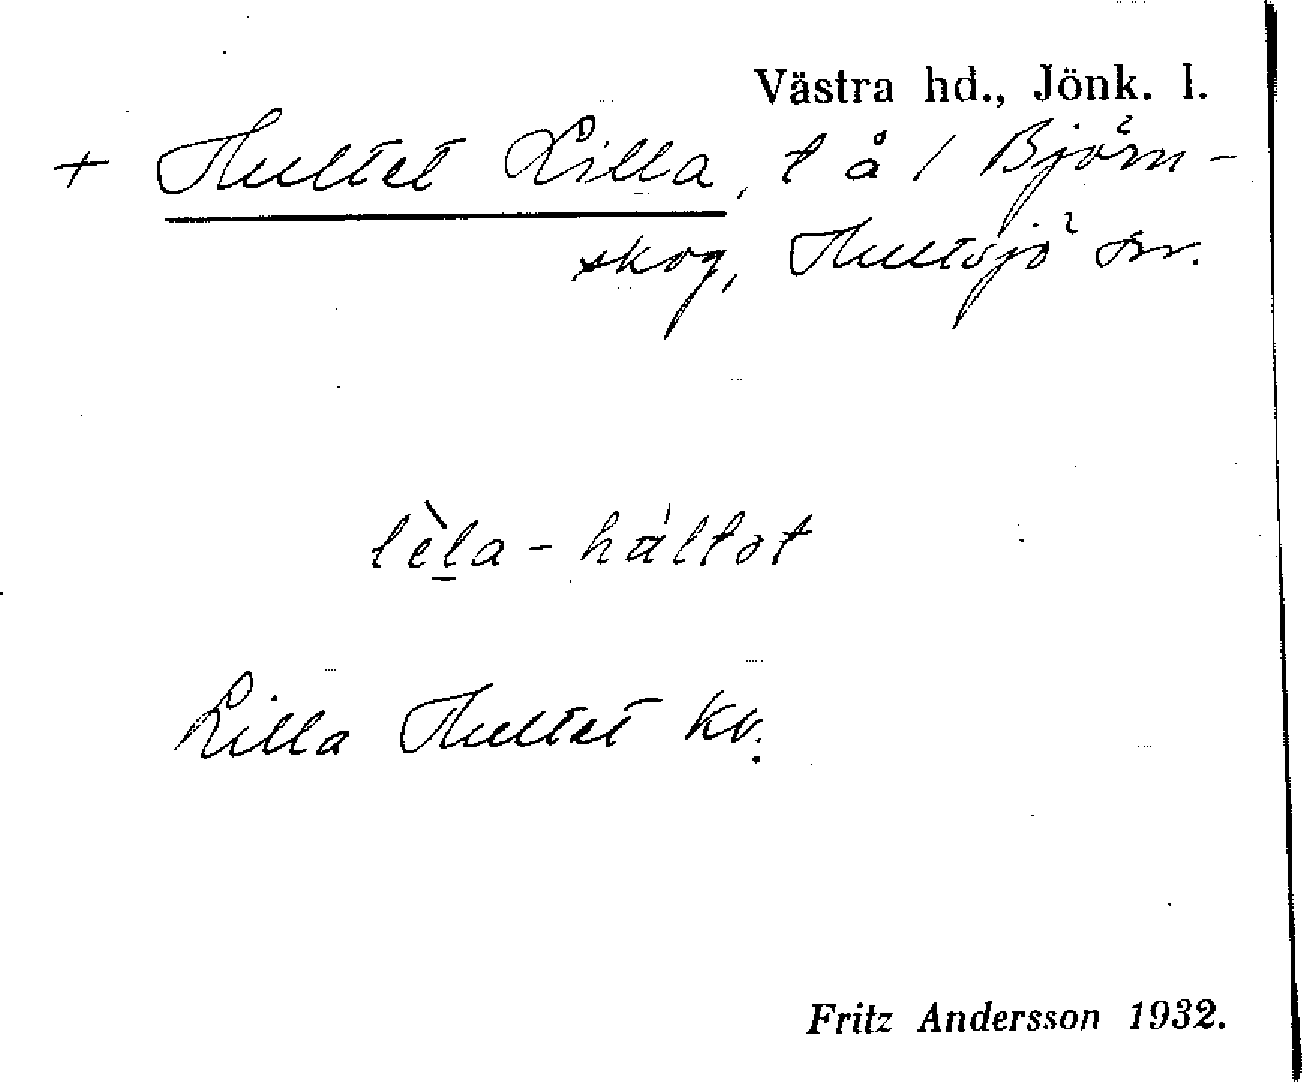 Västra hd., Jönk. l.
+ Hultet Lilla, t å / Björn-
skog, Hultsjö sn.
lèla-háltot
Lilla Hultet kv.
Fritz Andersson 1932.